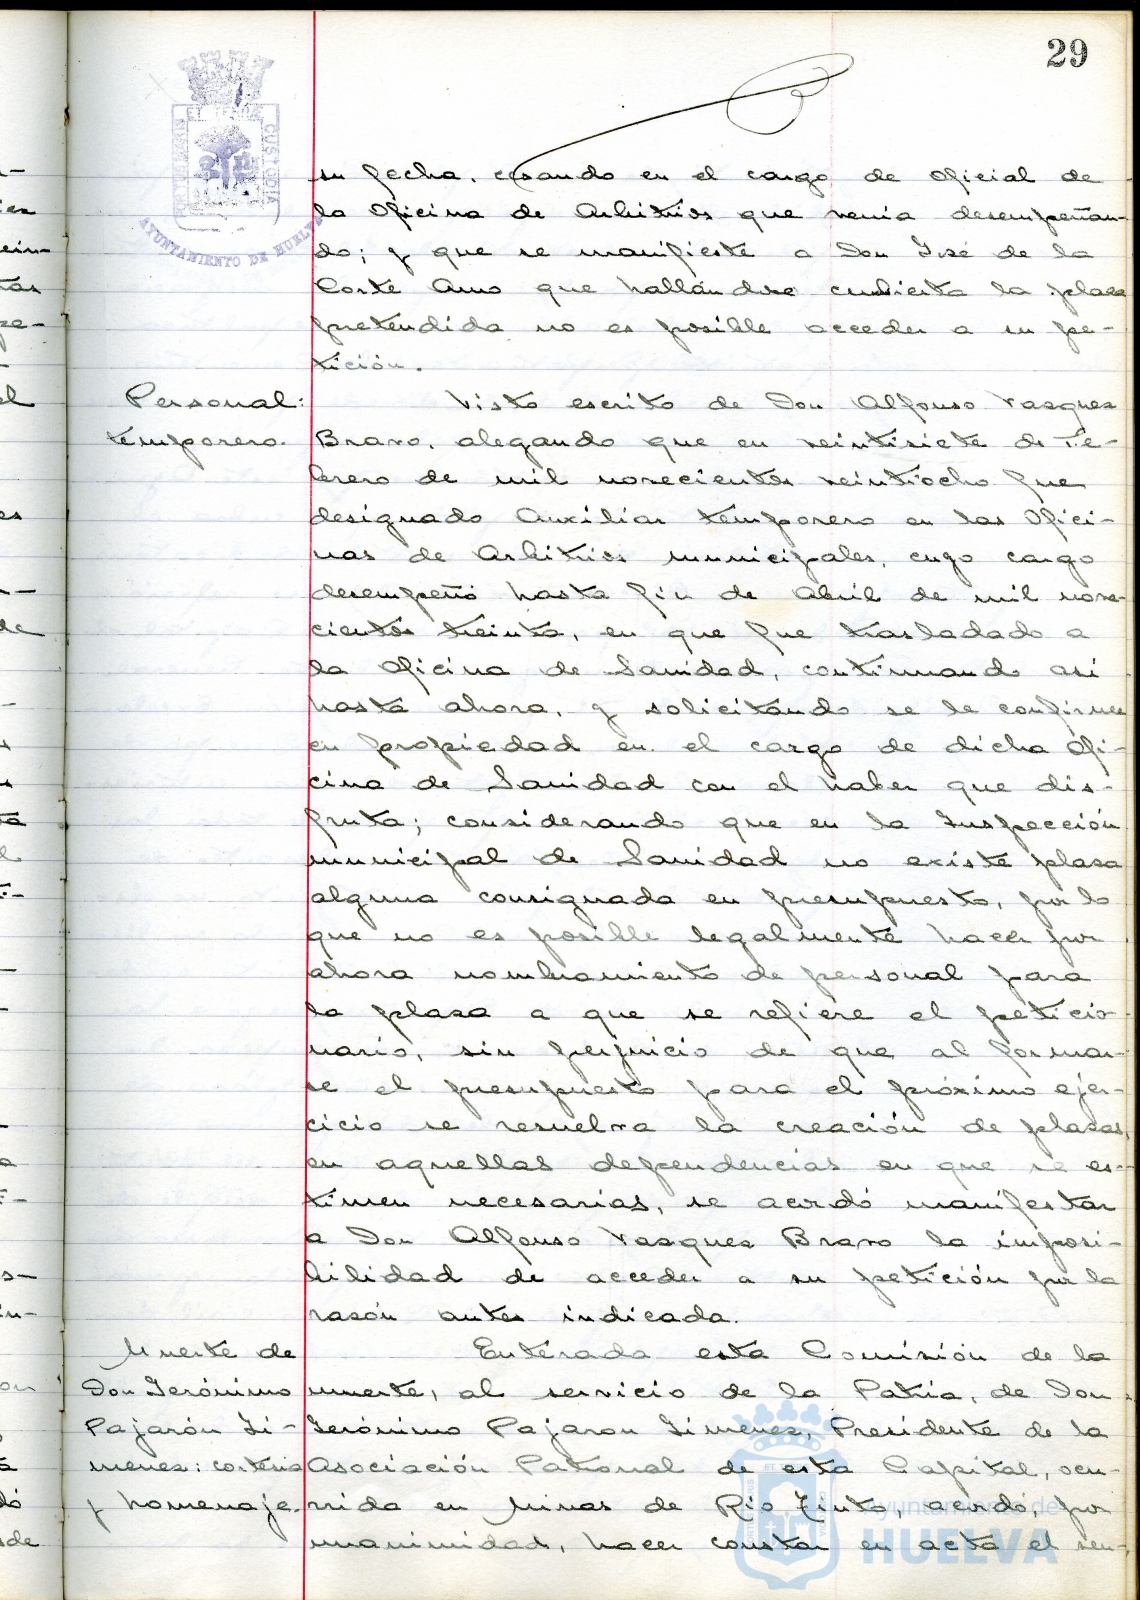 29
AYUNTAMIENTO DE HUELVA
su fecha, cesando en el cargo de Oficial de
la Oficina de Arbitrios que venia desempeñan-
do; y que se manifieste a Don José de la
Corte Amo que hallandose cubierta la plaza
pretendida no es posible acceder a su pe-
tición.
Personal:
temporero.
Visto escrito de Don Alfonso Vazquez
Bravo, alegando que en veintisiete de Fe-
brero de mil novecientos veintiocho fue
designado Auxiliar temporero en las Ofici-
nas de Arbitrios municipales, cuyo cargo
desempeñó hasta fin de Abril de mil nove-
cientos treinta, en que fue trasladado a
la Oficina de Sanidad, continuando asi
hasta ahora, y solicitando se le confirme
en propiedad en el cargo de dicha Ofi-
cina de Sanidad con el haber que dis-
fruta; considerando que en la Inspección
municipal de Sanidad no existe plaza
alguna consignada en presupuesto, por lo
que no es posible legalmente hacer por
ahora nombramiento de personal para
la plaza a que se refiere el peticio-
nario, sin perjuicio de que al formar-
se el presupuesto para el próximo ejer-
cicio se resuelva la creación de plazas,
en aquellas dependencias en que se es-
timen necesarias, se acordó manifestar
a Don Alfonso Vazquez Bravo la imposi-
bilidad de acceder a su petición por la
razón antes indicada.
Muerte de
Don Jerónimo
Pajarón Ji-
menez: corteria
y homenaje.
Enterada esta Comisión de la
muerte, al servicio de la Patria, de Don
Jerónimo Pajaron Jimenez, Presidente de la
Asociación Patronal de esta Capital, ocu-
rrida en Minas de Rio Tinto, acordó, por
unanimidad, hacer constar en acta el sen-
Ayuntamiento de
HUELVA